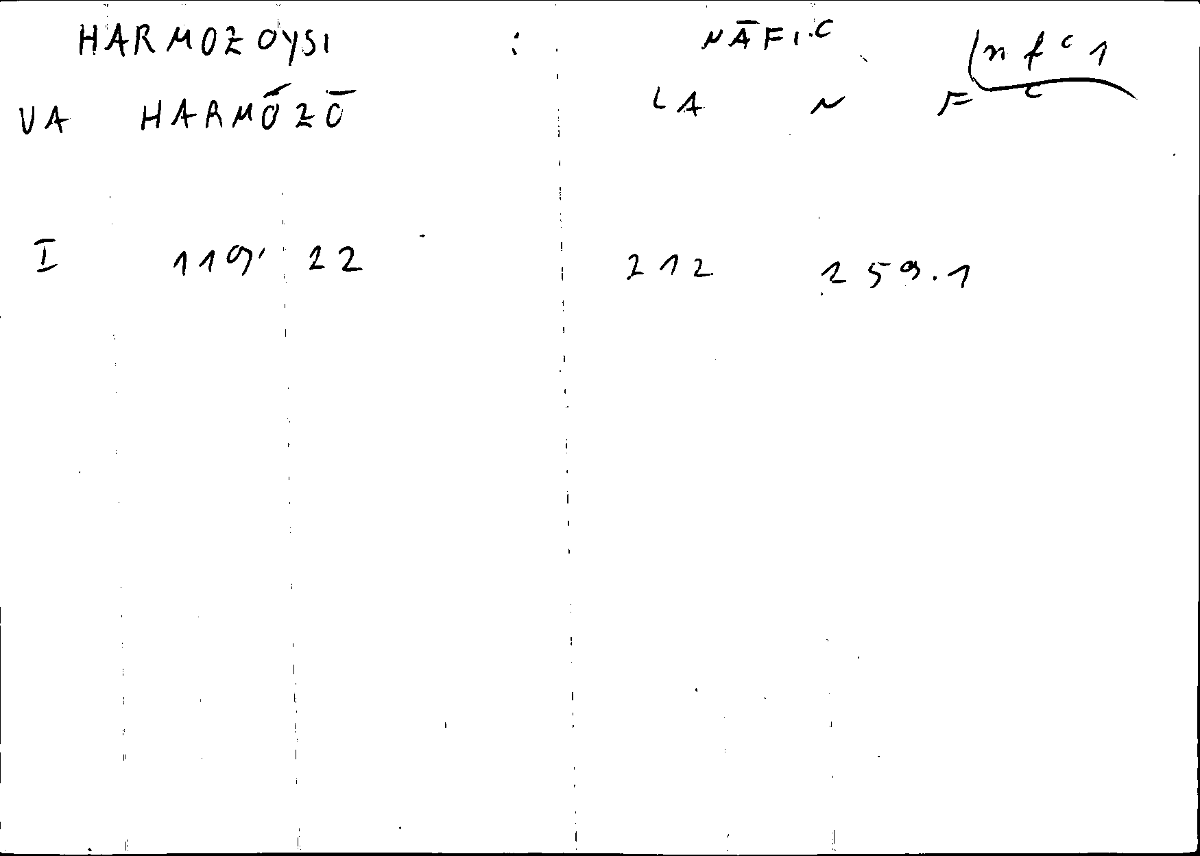 HARMOZOYSI : NĀFIʿC (n f ʿ 1
VA HARMÓZŌ LA N F ʿ
I 119, 22 212 259.1